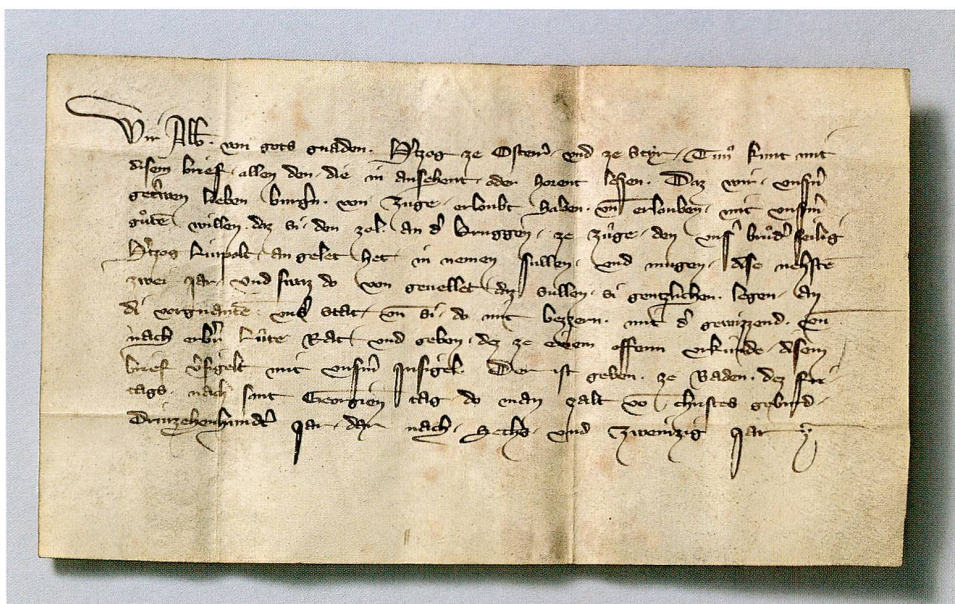 Wir Alb. von gots gnaden. H'tzog ze Osterr'. vnd ze Styr. Tun kunt mit
disem brief. allen den. die in ansehent. oder horent lesen. Daz wir. vnsern
getrwen lieben burg'n. von Zuge. erloubt haben. vn erlouben. mit vnserm
gůtē willen. daz si. den zol. an d' Bruggen. ze Zůge. den vns' brůd' selig
H'tzog Lúpolt. an geleit het in nemen sullen. vnd mugen. dise nehstē
zwei jar. vnd swaz do von geuellet. daz sullen. si gentzlichen. legen. an
di vorgnante. vns' stat. vn si. do mit bezzern. mit d' gewizzend. vn
nach erb'n lúte Rat vnd geben. dez ze einem offenn vrkúnde. disem
brief v'sigelt mit vnserm Insigel. Der ist geben. ze Baden. dez fri
tags. nach sant Georgien tag do man zalt vō Christes geburd.
Drúzehenhund't jar. dar nach. sechs. vnd zweinzig jar